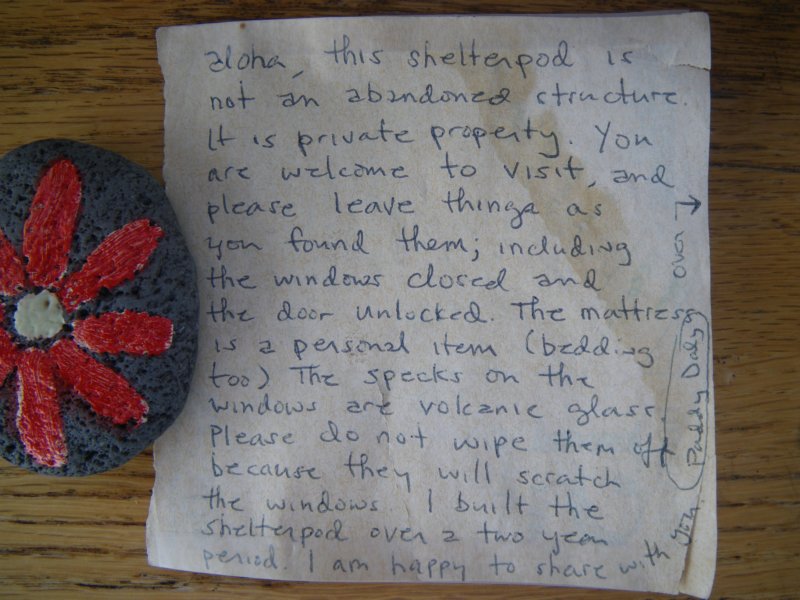 aloha, this shelterpod is
not an abandoned structure.
It is private property. You
are welcome to visit, and
please leave things as
you found them; including
the windows closed and
the door unlocked. The mattress
is a personal item (bedding
too) The specks on the
windows are volcanic glass.
Please do not wipe them off
because they will scratch
the windows. I built the
shelterpod over a two year
period. I am happy to share with you.
Paddy Daly
over →